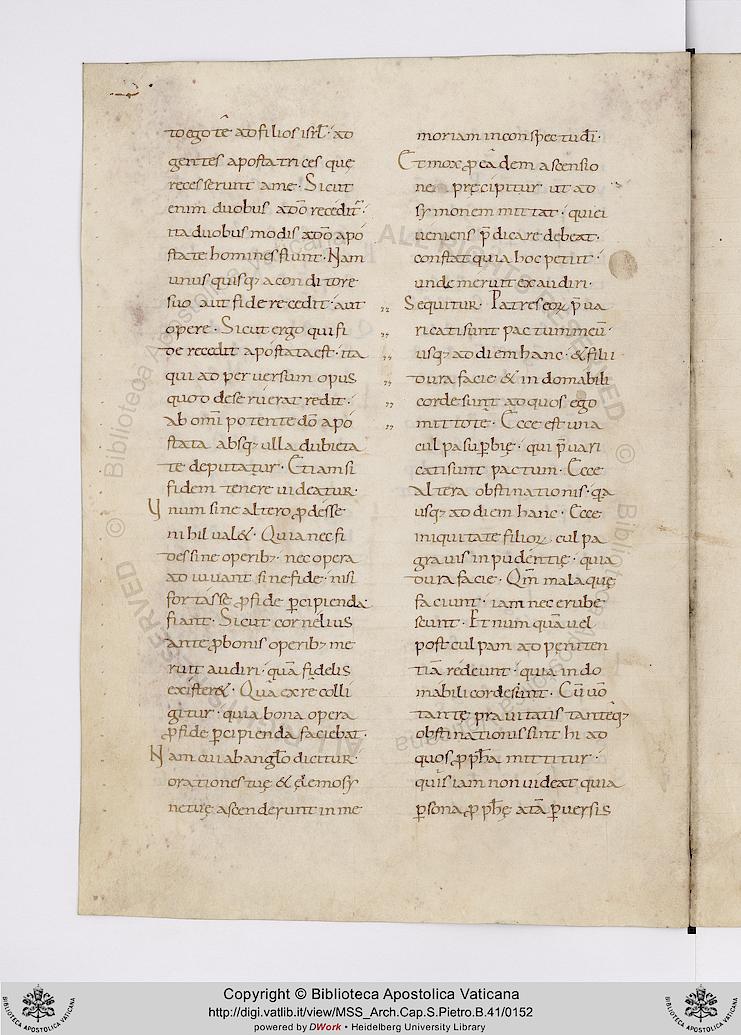 to ego te ad filios isrl̄· ad
gentes apostatrices quę
recesserunt a me· Sicut
enim duobus a dō recedit̄·
ita duobus modis a dō apo
state homines fiunt· Nam
unus quisq; a conditore
suo aut fide recedit· aut
opere· Sicut ergo qui fi
de recedit apostata est· ita
qui ad perversum opus
quod deseruerat redit·
ab omī potente dō apo
stata absq; ulla dubieta
te deputatur· Etiam si
fidem tenere videatur·
Unum sine altero ꝓdesse
nihil val&· Quia nec fi
des sine operib; nec opera
adiuvant sine fide· nisi
fortasse ꝓ fide ꝑcipienda
fiant· Sicut cornelius
ante ꝓ bonis operib; me
ruit audiri· quā fidelis
exister&· Qua ex re colli
gitur· quia bona opera
ꝓ fide ꝑcipienda faciebat·
Nam cui ab anglo dicitur·
orationes tuę & ęlemosy
nę tuę ascenderunt in me
moriam in conspectu dī·
Et mox ꝓ eadem ascensio
ne pręcipitur ut ad
symonem mittat· qui ei
veniens p̄dicare debeat·
constat quia hoc petiit·
unde meruit exaudiri·
Sequitur· Patres eoꝝ p̄va
ricati sunt pactum meū·
usq; ad diem hanc· & filii
dura facie & indomabili
corde sunt ad quos ego
mitto te· Ecce est una
culpa suꝑbię· qui p̄vari
cati sunt pactum· Ecce
altera obstinationis· qa
usq; ad diem hanc· Ecce
iniquitate filioꝝ culpa
gravis inpudentię· quia
dura facie· Qm̄ mala quę
faciunt· iam nec erube
scunt· Et numquā vel
post culpam ad peniten
tiā redeunt· quia indo
mabili corde sunt· Cū v̄o
tantę pravitatis tantęq;
obstinationis sint hi ad
quos ꝓpha mittitur·
quis iam non videat quia
ꝑsona ꝓphę a tā ꝑversis
Copyright © Biblioteca Apostolica Vaticana
http://digi.vatlib.it/view/MSS_Arch.Cap.S.Pietro.B.41/0152
powered by DWork • Heidelberg University Library